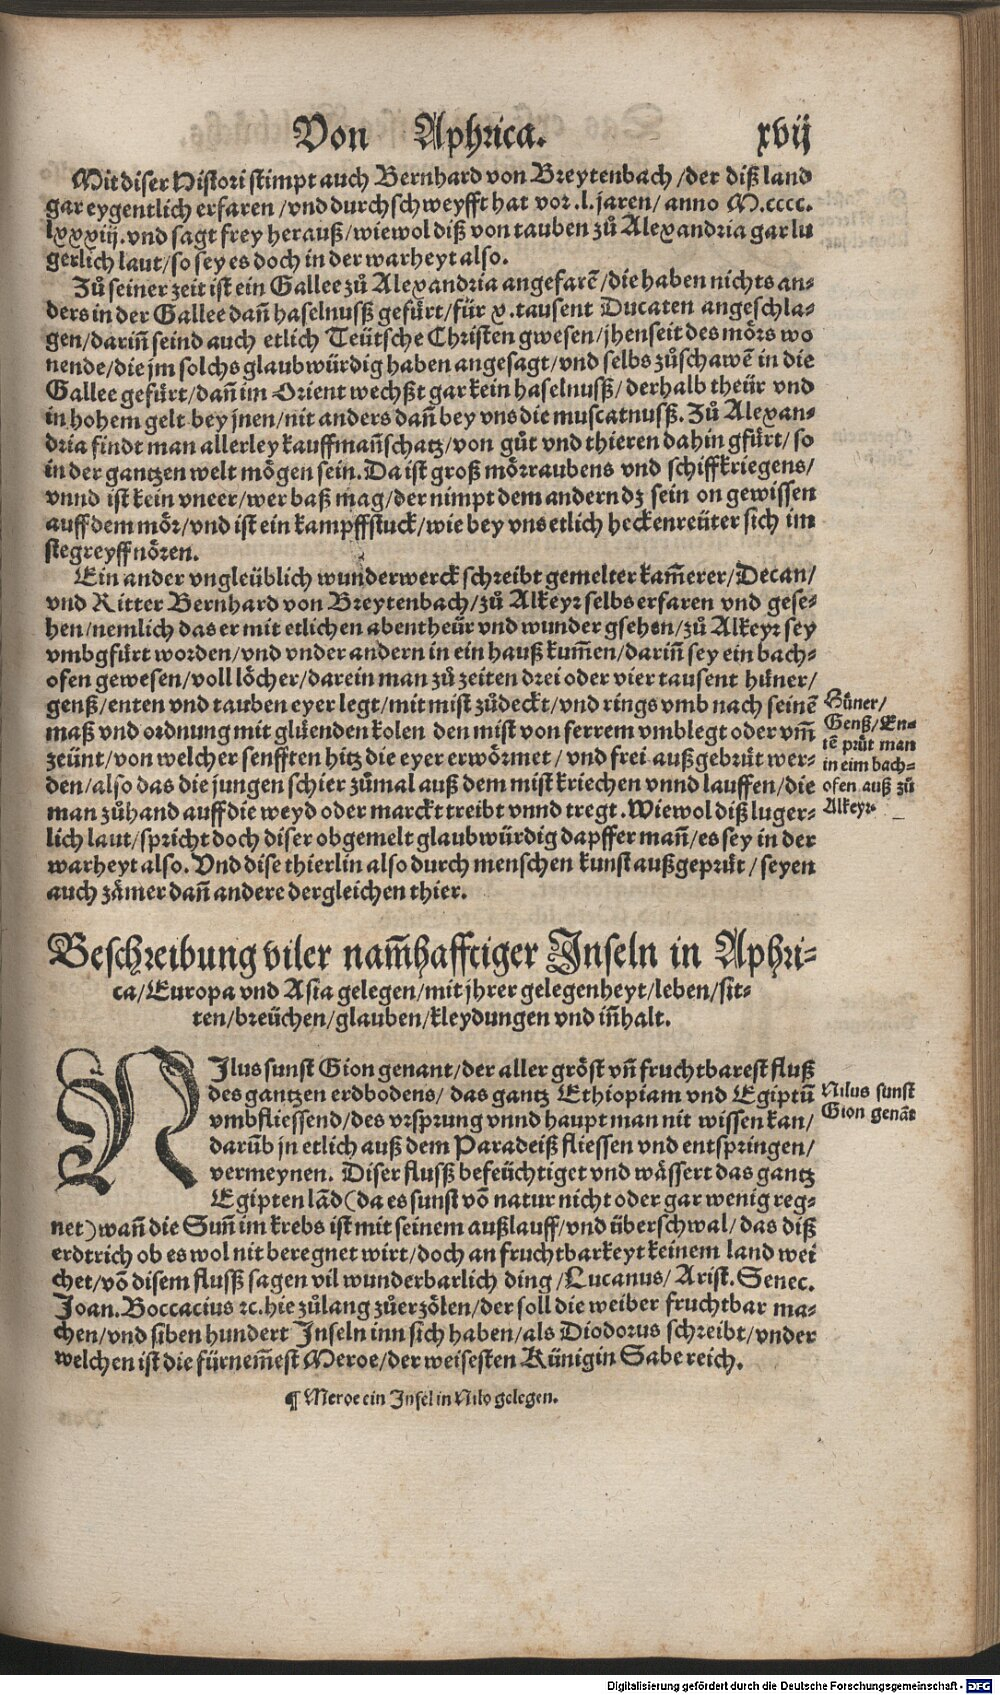 Von Aphrica. xvij
Mit diser Histori stimpt auch Bernhard von Breytenbach/der diß land
gar eygentlich erfaren/vnd durchschweyfft hat vor .l. jaren/ anno M.cccc.
lxxxiij. vnd sagt frey herauß/wiewol diß von tauben zů Alexandria gar lu
gerlich laut/so sey es doch in der warheyt also.
Zů seiner zeit ist ein Gallee zů Alexandria angefarẽ/die haben nichts an-
ders in der Gallee dañ haselnusß gefürt/für x. tausent Ducaten angeschla-
gen/dariñ seind auch etlich Teütsche Christen gwesen/jhenseit des mörs wo
nende/die jm solchs glaubwürdig haben angesagt/vnd selbs zůschawẽ in die
Gallee gefürt/dañ im Orient wechßt gar kein haselnusß/ derhalb theür vnd
in hohem gelt bey jnen/nit anders dañ bey vns die muscatnusß. Zů Alexan-
dria findt man allerley kauffmañschatz/von gůt vnd thieren dahin gfürt/ so
in der gantzen welt mögen sein. Da ist groß mörraubens vnd schiffkriegens/
vnnd ist kein vneer/wer baß mag/der nimpt dem andern dz sein on gewissen
auff dem mör/vnd ist ein kampffstuck/wie bey vns etlich heckenreüter sich im
stegreyff nören.
Ein ander vngleüblich wunderwerck schreibt gemelter kam̃erer/Decan/
vnd Ritter Bernhard von Breytenbach/zů Alkeyr selbs erfaren vnd gese-
hen/nemlich das er mit etlichen abentheür vnd wunder gsehen/zů Alkeyr sey
vmbgfürt worden/vnd vnder andern in ein hauß kum̃en/dariñ sey ein bach-
ofen gewesen/voll löcher/darein man zů zeiten drei oder vier tausent hüner/
genß/enten vnd tauben eyer legt/mit mist zůdeckt/vnd rings vmb nach seinẽ
maß vnd ordnung mit glüenden kolen den mist von ferrem vmblegt oder vm̃
zeünt/von welcher senfften hitz die eyer erwörmet/ vnd frei außgebrüt wer-
den/also das die jungen schier zůmal auß dem mist kriechen vnnd lauffen/die
man zůhand auff die weyd oder marckt treibt vnnd tregt. Wiewol diß luger-
lich laut/spricht doch diser obgemelt glaubwürdig dapffer mañ/es sey in der
warheyt also. Vnd dise thierlin also durch menschen kunst außgeprüt/ seyen
auch zämer dañ andere dergleichen thier.
Hüner/
Genß/En-
tẽ prüt man
in eim bach-
ofen auß zů
Alkeyr.
Beschreibung viler nam̃hafftiger Inseln in Aphri-
ca/Europa vnd Asia gelegen/mit jhrer gelegenheyt/leben/sit-
ten/breüchen/glauben/kleydungen vnd iñhalt.
NIlus sunst Gion genant/der aller gröst vñ fruchtbarest fluß
des gantzen erdbodens/ das gantz Ethiopiam vnd Egiptũ
vmbfliessend/des vrsprung vnnd haupt man nit wissen kan/
darũb jn etlich auß dem Paradeiß fliessen vnd entspringen/
vermeynen. Diser flusß befeüchtiget vnd wässert das gantz
Egipten lãd (da es sunst võ natur nicht oder gar wenig reg-
net) wañ die Suñ im krebs ist mit seinem außlauff/vnd überschwal/ das diß
erdtrich ob es wol nit beregnet wirt/doch an fruchtbarkeyt keinem land wei
chet/võ disem flusß sagen vil wunderbarlich ding/Lucanus/ Arist. Senec.
Joan. Boccacius ꝛc. hie zůlang zůerzölen/der soll die weiber fruchtbar ma-
chen/vnd siben hundert Inseln inn sich haben/als Diodorus schreibt/vnder
welchen ist die fürnem̃est Meroe/der weisesten Künigin Sabe reich.
Nilus sunst
Gion genãt
¶ Meroe ein Insel in Nilo gelegen.
Digitalisierung gefördert durch die Deutsche Forschungsgemeinschaft - DFG